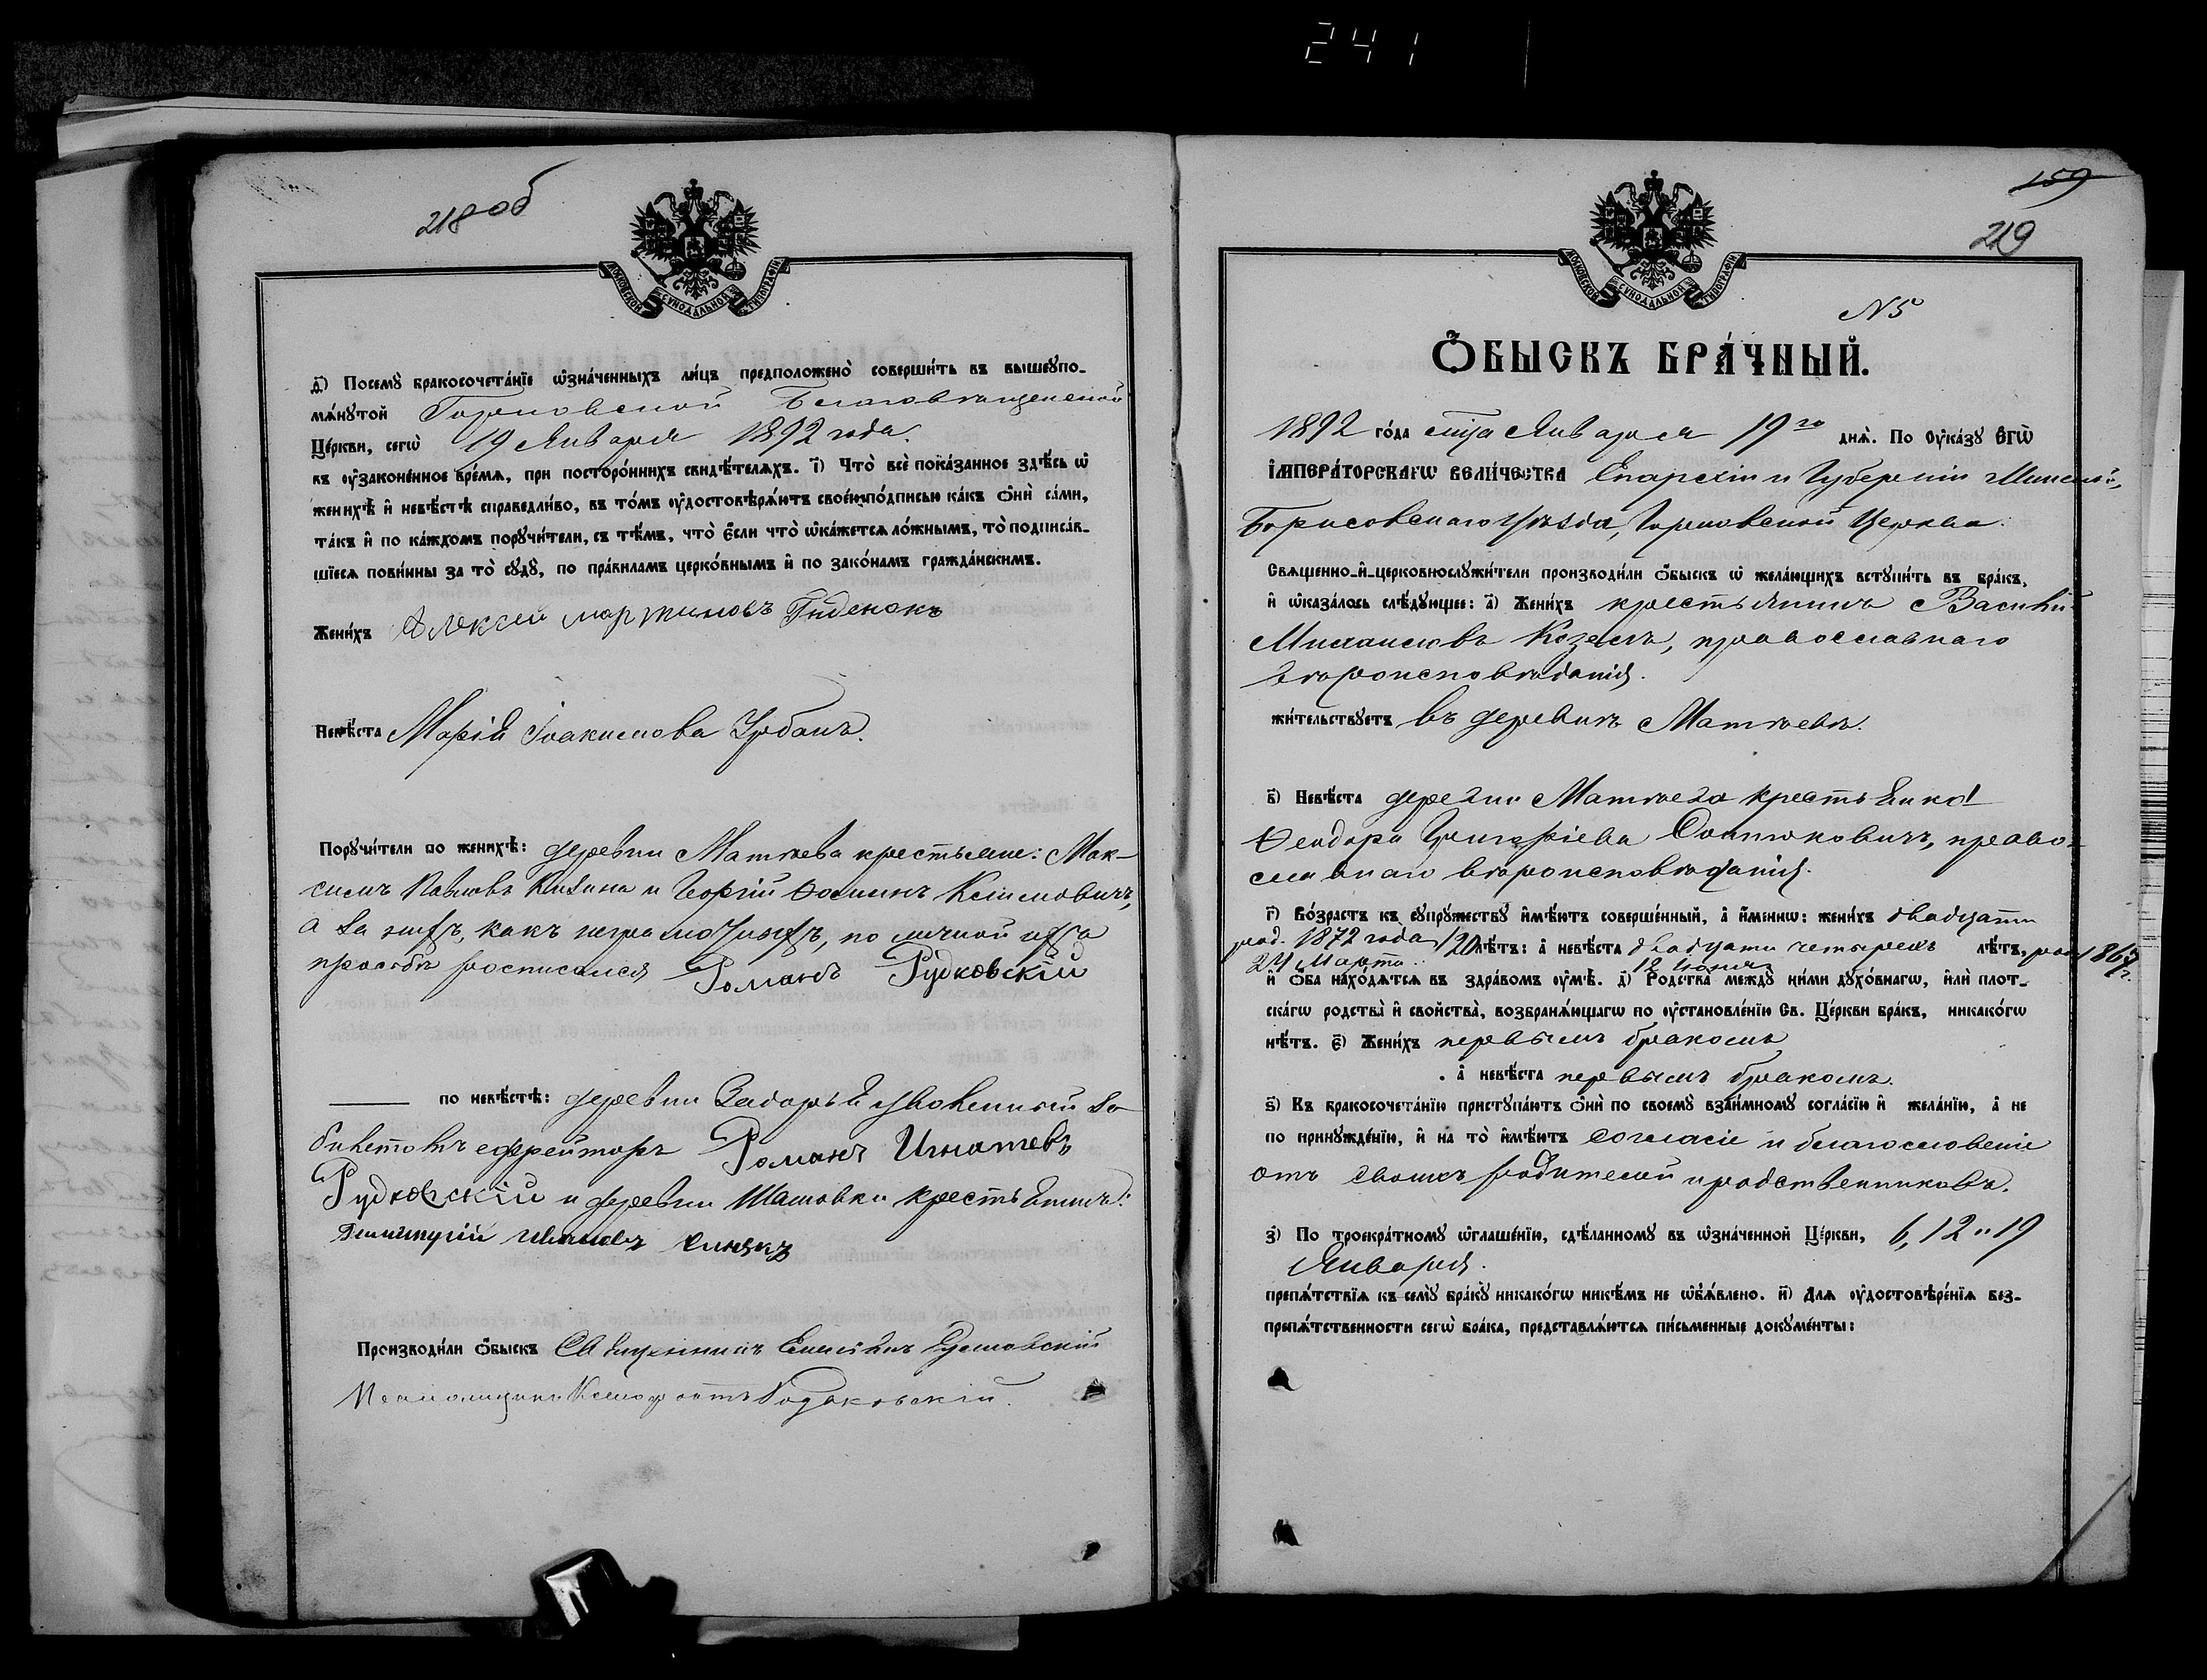 241
218 об
МОСКОВСКОЙ СѴНОДАЛЬНОЙ ТИПОГРАФІИ
д҃) Посемꙋ̀ бракосочета́нїе ѡ҆зна́ченныхъ ли́цъ предположено̀ соверши́ть въ вышеꙋпо-
мѧ́нꙋтой Горновской Благовѣщенской
Це́ркви, сегѡ̀ 19 Января 1892 года.
въ ᲂу҆зако́ненное вре́мѧ, при посторо́ннихъ свидѣ́телѧхъ. і҃) Что̀ всѐ пока́занное здѣ́сь ѡ҆
женихѣ̀ и҆ невѣ́стѣ справедли́во, въ то́мъ ᲂу҆достовѣрѧ́ютъ свое́ю по́дписью ка́къ ѻ҆нѝ са́ми,
та́къ и҆ по ка́ждомъ порꙋчи́тели, съ тѣ́мъ, что̀ є҆́сли что̀ ѡ҆ка́жетсѧ ло́жнымъ, то̀ подписа́в-
шїесѧ пови́нны за то̀ сꙋдꙋ̀, по пра́виламъ церко́внымъ и҆ по зако́намъ гражда́нскимъ.
Жени́хъ Алексей мартиновъ Гиденокъ
Невѣ́ста Марія Іоакимова Урбанъ.
Порꙋчи́тели по женихѣ̀: деревни Матѣева крестьяне: Мак-
симъ Павловъ и Георгій Ѳоминъ Климовичъ,
а за нихъ, какъ неграмотныхъ, по личной ихъ
просьбѣ росписался Романъ Рудковскій
по невѣ́стѣ: деревни Загорья уволенный за
билетомъ ефрейторъ Романъ Игнатевъ
Рудковскій и деревни Шамовки крестьянинъ:
Димитрій Ивановъ
Производи́ли ѻ҆́быскъ Священникъ
Псаломщикъ Ксенофонтъ
159
219
МОСКОВСКОЙ СѴНОДАЛЬНОЙ ТИПОГРАФІИ
N 5
Ѻ҆́БЫСКЪ БРА́ЧНЫЙ.
1892 го́да мѣсяца Января 19го днѧ̀. По ᲂу҆ка́зꙋ Є҆ГѠ̀
І҆МПЕРА́ТОРСКАГѠ ВЕЛИ́ЧЕСТВА Епархіи и Губерніи Минской,
Борисовскаго уѣзда, Горновской Церкви
Свѧще́нно-и҆-церковнослꙋжи́тели производи́ли ѻ҆́быскъ ѡ҆ жела́ющихъ встꙋпи́ть въ бра́къ,
и҆ ѡ҆каза́лось слѣ́дꙋющее: а҃) Жени́хъ крестьянинъ Василій
Михаиловъ Козелъ, православнаго
вѣроисповѣданія.
жи́тельствꙋетъ въ деревнѣ Матѣевѣ.
в҃) Невѣ́ста деревни Матѣева крестьянка
Ѳеодора Григоріева право-
славнаго вѣроисповѣданія.
г҃) Во́зрастъ къ сꙋпрꙋ́жествꙋ и҆мѣ́ютъ соверше́нный, а҆ и҆́меннѡ: жени́хъ двадцати
род. 1872 года 20 лѣ́тъ: а҆ невѣ́ста двадцати четырехъ лѣ́тъ, род. 1867 г.
24 Марта 12 Іюня
и҆ ѻ҆́ба нахо́дѧтсѧ въ здра́вомъ ᲂу҆мѣ̀. д҃) Родства̀ междꙋ̀ ни́ми дꙋхо́внагѡ, и҆лѝ плот-
ска́гѡ родства̀ и҆ сво́йства̀, возбранѧ́ющагѡ по ᲂу҆становле́нїю Св. Це́ркви бра́къ, никако́гѡ
нѣ́тъ. є҃) Жени́хъ первымъ бракомъ
а҆ невѣ́ста первымъ бракомъ.
ѕ҃) Къ бракосочета́нїю пристꙋпа́ютъ ѻ҆нѝ по своемꙋ̀ взаи́мномꙋ согла́сїю и҆ жела́нїю, а҆ не
по принꙋжде́нїю, и҆ на то̀ и҆мѣ́ютъ согласіе и благословеніе
отъ своихъ родителей и родственниковъ.
з҃) По троекра́тномꙋ ѡ҆глаше́нїю, сдѣ́ланномꙋ въ ѡ҆зна́ченной Це́ркви, 6, 12 и 19
Января.
препѧ́тствїѧ къ семꙋ̀ бра́кꙋ никако́гѡ никѣ́мъ не ѡ҆б̾ѧ́влено. и҃) Длѧ ᲂу҆достовѣре́нїѧ без-
препѧ́тственности сегѡ̀ бра́ка, представлѧ́ютсѧ пи́сьменные докꙋме́нты: